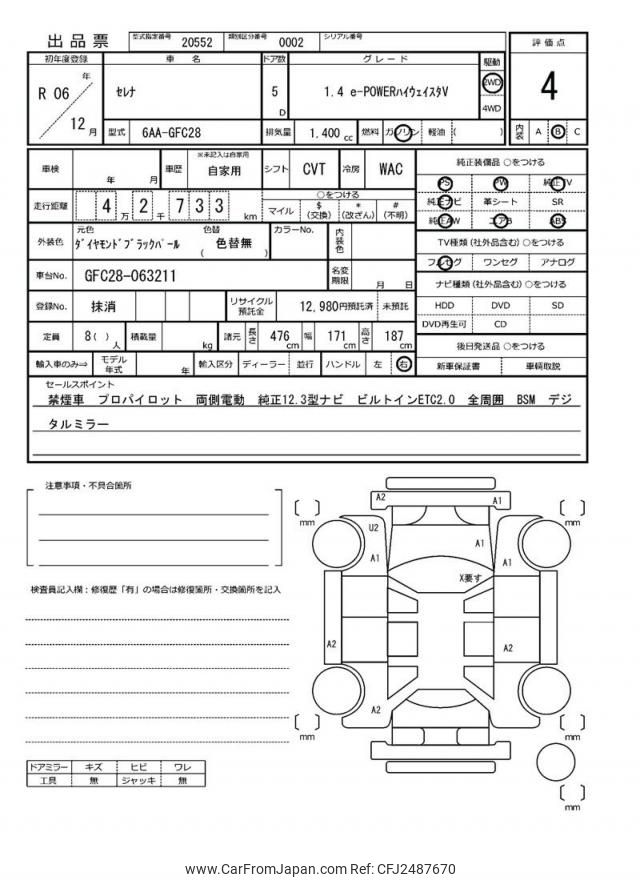 出品票 型式指定番号 20552 類別区分番号 0002 シリアル番号
評価点
4
内装 A B C
初年度登録 車名 ドア数 グレード 駆動
R 06 年 12 月
セレナ 5 D 1.4 e-POWERﾊｲｳｪｲｽﾀV 2WD
4WD
型式 6AA-GFC28 排気量 1,400 cc 燃料 ガソリン 軽油 ( )
車検 年 月 車歴 ※未記入は自家用 自家用 シフト CVT 冷房 WAC
走行距離 4 万 2 千 7 3 3 km
○をつける
マイル $ (交換) * (改ざん) # (不明)
外装色 元色 ﾀﾞｲﾔﾓﾝﾄﾞﾌﾞﾗｯｸﾊﾟｰﾙ 色替 ( 色替無 ) カラーNo. 内装色
車台No. GFC28-063211 名変期限 月 日
登録No. 抹消 リサイクル預託金 12,980円預託済 未預託
定員 8( ) 人 積載量 kg 諸元 長さ 476 cm 幅 171 cm 高さ 187 cm
輸入車のみ⇒ モデル年式 年 輸入区分 ディーラー 並行 ハンドル 左 右
純正装備品 ○をつける
PS PW 純正TV
純正ナビ 革シート SR
純正AW エアB ABS
TV種類 (社外品含む) ○をつける
フルセグ ワンセグ アナログ
ナビ種類 (社外品含む) ○をつける
HDD DVD SD
DVD再生可 CD
後日発送品 ○をつける
新車保証書 車輌取説
セールスポイント
禁煙車 プロパイロット 両側電動 純正12.3型ナビ ビルトインETC2.0 全周囲 BSM デジ
タルミラー
注意事項・不具合箇所
検査員記入欄：修復歴「有」の場合は修復箇所・交換箇所を記入
A2 A1
mm mm
U2 A1
A1 A1
X要す
A2 A2
A2
mm mm
mm
ドアミラー キズ ヒビ ワレ
工具 無 ジャッキ 無
www.CarFromJapan.com Ref: CFJ2487670